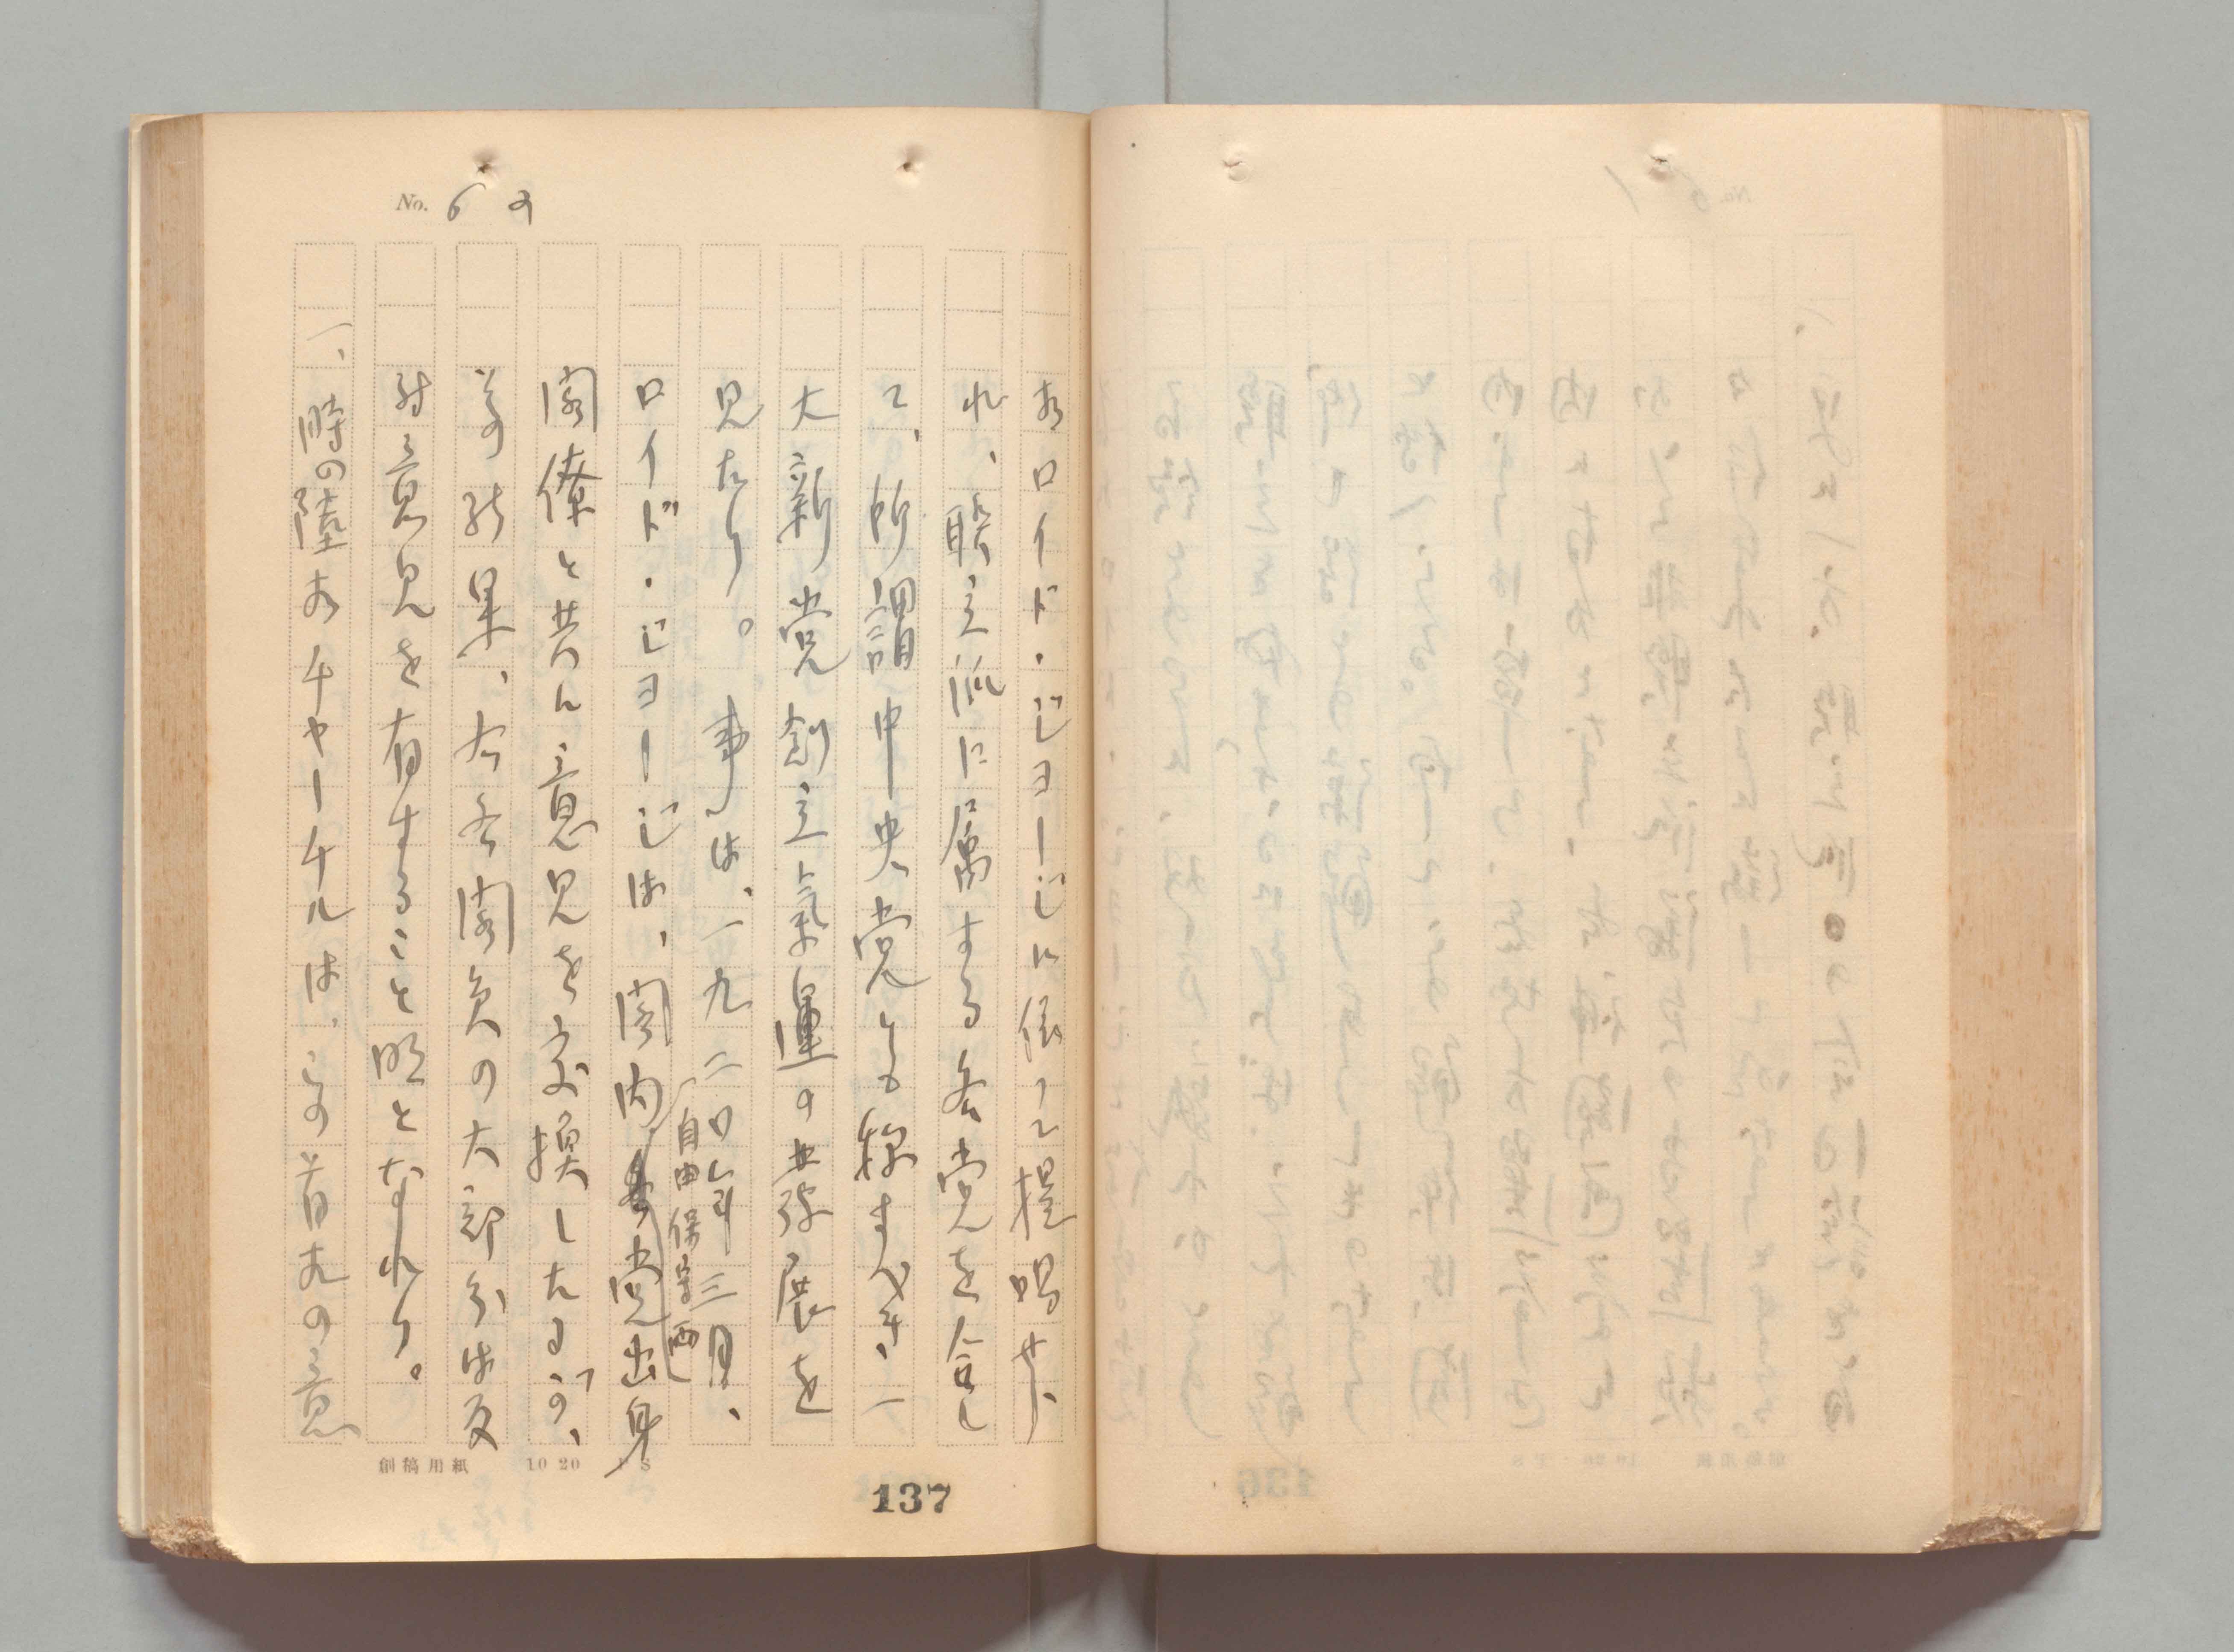 No. 62
相ロイド・ジヨージに依つて提唱せら
れ、聯立派に属する各党を合し
て、所謂中央党とも称すべき、一
大新党創立気運の発展を
見たり。事は、一九二〇年三月、
ロイド・ジヨージは、閣内(自由保守両)党出身
閣僚と共に意見を交換したるが、
その結果、右各閣員の大部分は反
対意見を有すること明となれり。
一、時の陸相チヤーチルは、この首相の意
創稿用紙 10 20
137